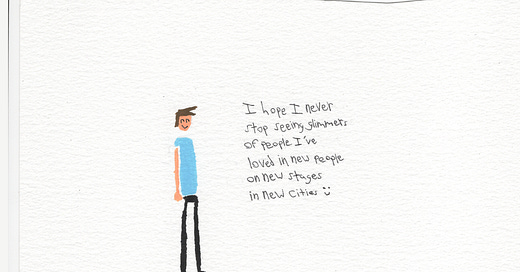 I hope I never
stop seeing glimmers
of people I've
loved in new people
on new stages
in new cities :)